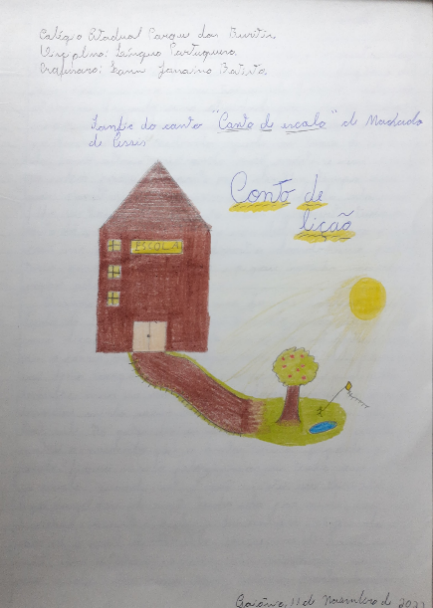 Colégio Estadual Parque dos Buritis
Disciplina: Língua Portuguesa
Fanfic do conto "Conto de escola" de Machado
de Assis
Conto de
lição
ESCOLA
Goiânia, 11 de Novembro de 2022